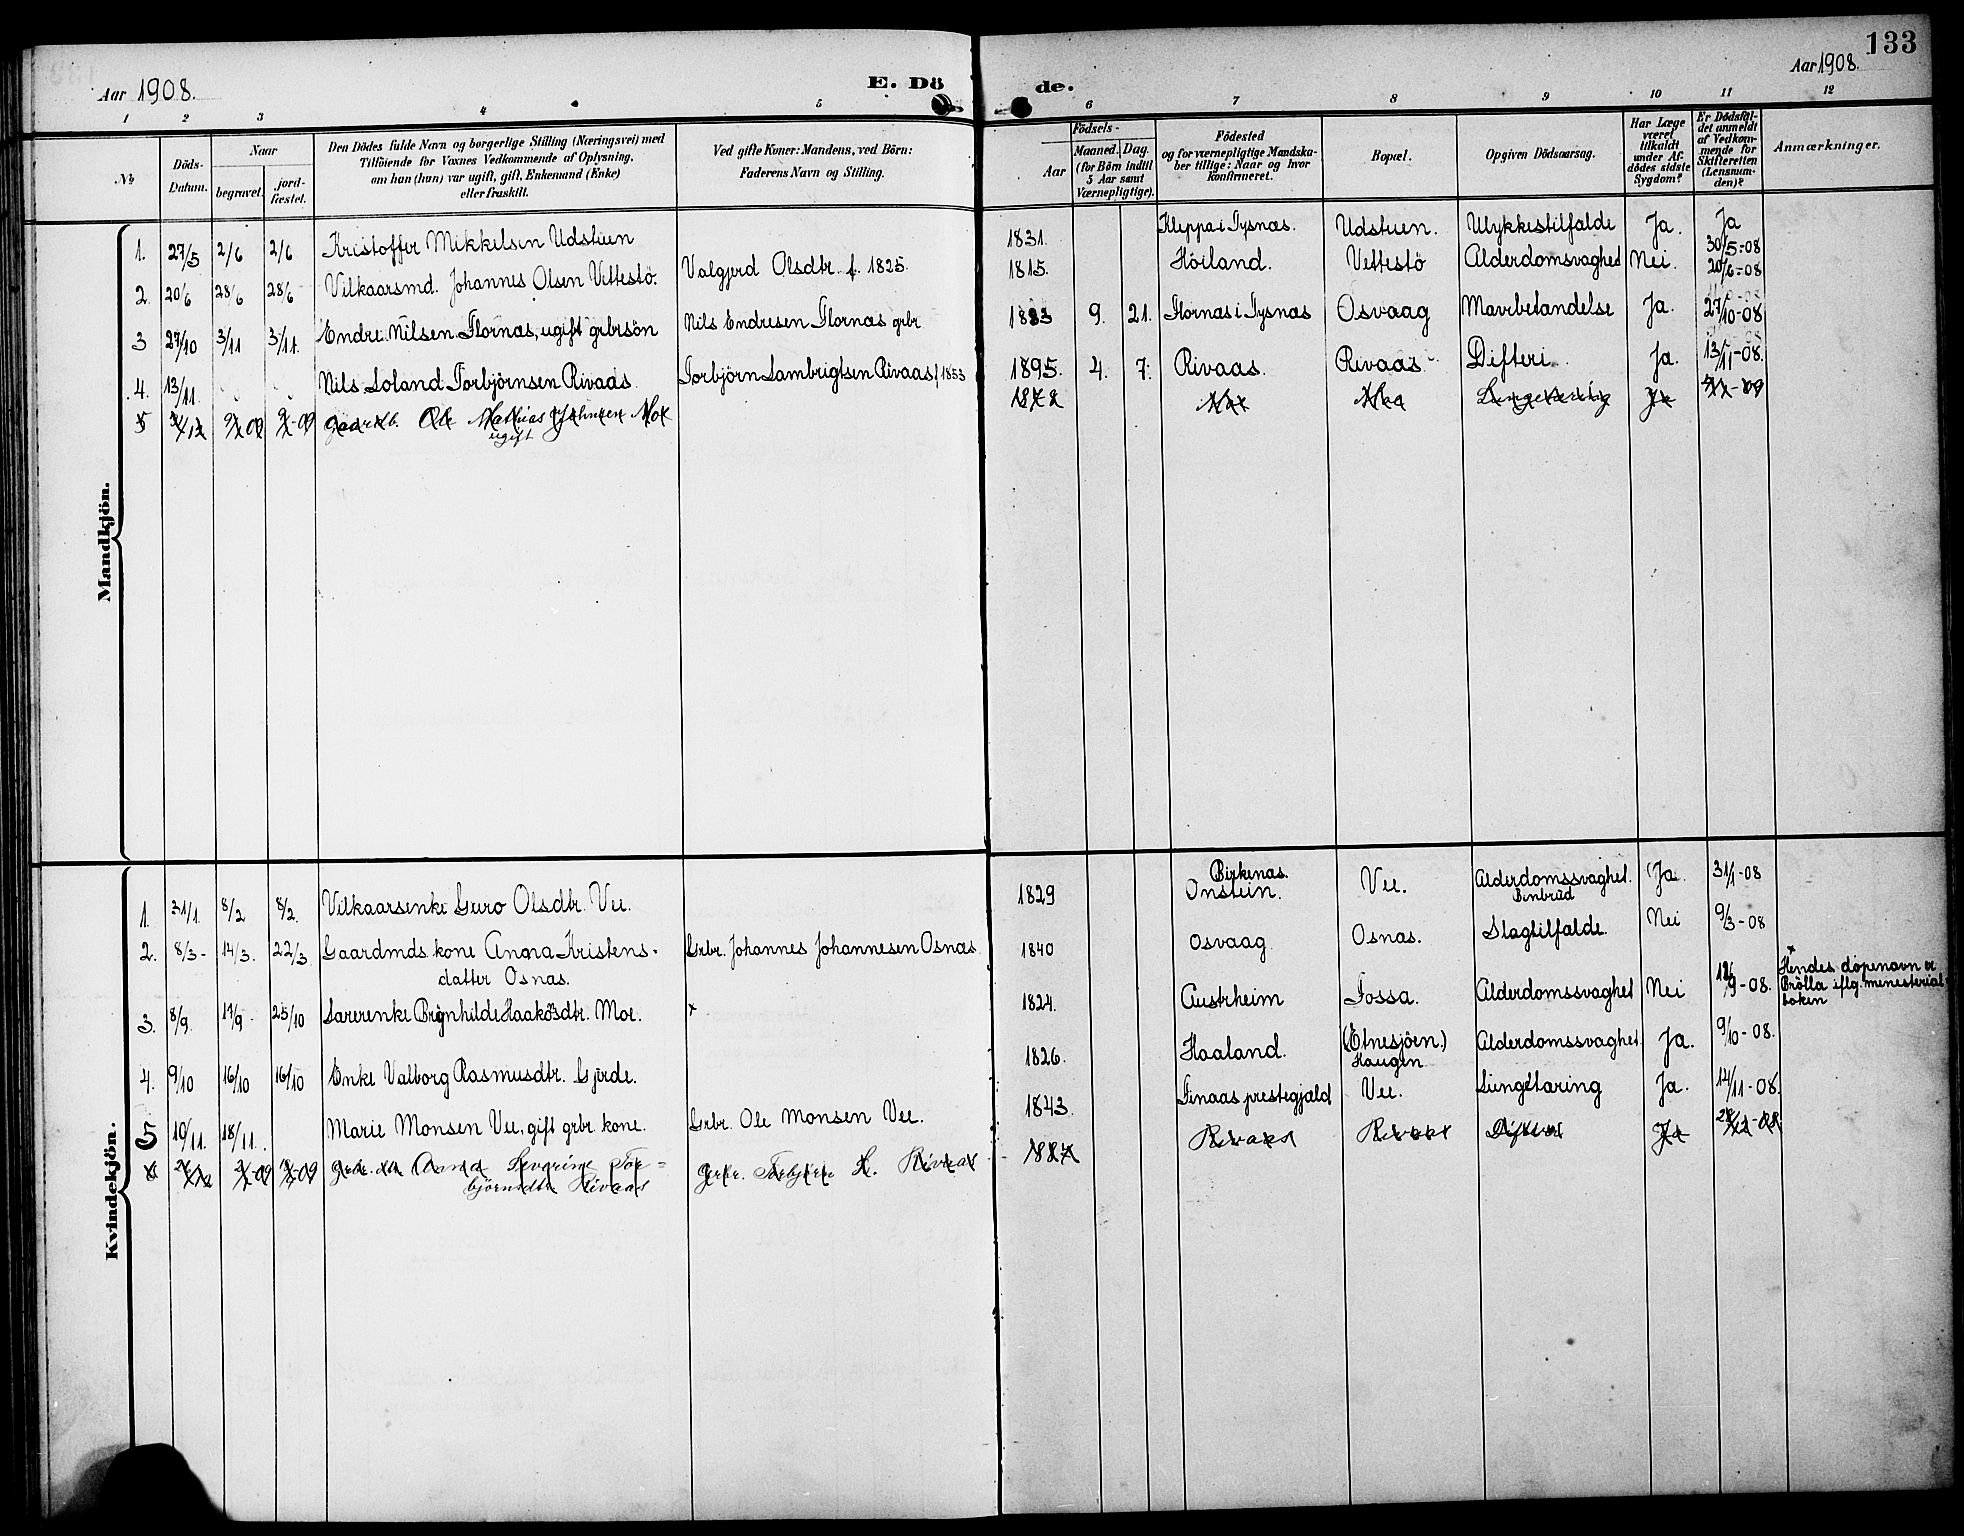 133
Aar 1908.
E. Dö
de.
Aar 1908.
1 2 3 4 5 6 7 8 9 10 11 12
No
Döds-Datum.
Naar
begravet.
jord-fæstet.
Den Dödes fulde Navn og borgerlige Stilling (Næringsvei) med
Tilföiende for Voxnes Vedkommende af Oplysning,
om han (hun) var ugift, gift, Enkemand (Enke)
eller fraskilt.
Ved gifte Koner: Mandens, ved Börn:
Faderens Navn og Stilling.
Födsels-
Aar
Maaned. Dag.
(for Börn indtil
5 Aar samt
Værnepligtige).
Födested
og for værnepligtige Mandska-
ber tillige: Naar og hvor
Konfirmeret.
Bopæl.
Opgiven Dödsaarsag.
Har Læge
været
tilkaldt
under Af-
dödes sidste
Sygdom?
Er Dödsfal-
det anmeldt
af Vedkom-
mende for
Skifteretten
(Lensman-
den)?
Anmærkninger.
Mandkjön.
1. 27/5 2/6 2/6 Kristoffer Mikkelsen Udstuen 1831. Kleppa i Tysnæs. Udstuen. Ulykkestilfalde Ja. Ja 30/5-08
2. 20/6 28/6 28/6 Vilkaarsmd. Johannes Olsen Vettestö. Valgjerd Olsdtr. f. 1825. 1815. Höiland. Vettestö Alderdomsvaghed Nei. 20/6-08
3 27/10 3/11 3/11. Endre Nilsen Flornæs, ugift grbrsön Nils Endresen Flornæs grbr 1883 9. 21. Flornæs i Tysnæs Osvaag Mavebetændelse Ja. 27/10-08
4. 13/11. Nils Loland Torbjörnsen Rivaas. Torbjörn Lambrigtsen Rivaas f 1853 1895. 4. 7. Rivaas. Rivaas. Difteri. Ja. 13/11-08.
5 Gaardb. Ole Mathias Johnsen Mo
ugift
1872 Mo Lungetæring Ja
Kvindekjön.
1. 31/1. 8/2 8/2. Vilkaarsenke Guro Olsdtr. Vee. 1829 Birkenæs.
Onstein. Vee. Alderdomssvaghet.
Benbrud Ja. 31/1-08
2. 8/3- 14/3. 22/3 Gaardmds. kone Anna Kristens-
datter Osnæs. Grbr. Johannes Johannesen Osnæs 1840 Osvaag Osnæs. Slagtilfalde. Nei 9/3-08
3. 8/9. 17/9 25/10 Enke Brynhilde Haakösdtr. Moe. x 1824. Austrheim Fossa. Alderdomssvaghet Nei 9-08. x
Hendes døpenavn er
Brölla iflg. menesterial-
boken
4. 9/10 16/10 16/10 Enke Valborg Rasmusdtr. Gjerde. 1826. Haaland. (Etnesjöen.)
Haugen Alderdomssvaghet. Ja. 9/10-08.
5 10/11. 18/11. Marie Monsen Vee, gift grbr. kone. Grbr. Ole Monsen Vee. 1843. Finaas prestegjæld Vee. Lungetæring Ja. 12/11-08.
Anna Severine Tor=
björnsdtr Rivaas Grbr. Torbjörn L. Rivaas 1887 Rivaas Rivaas Difteri Ja